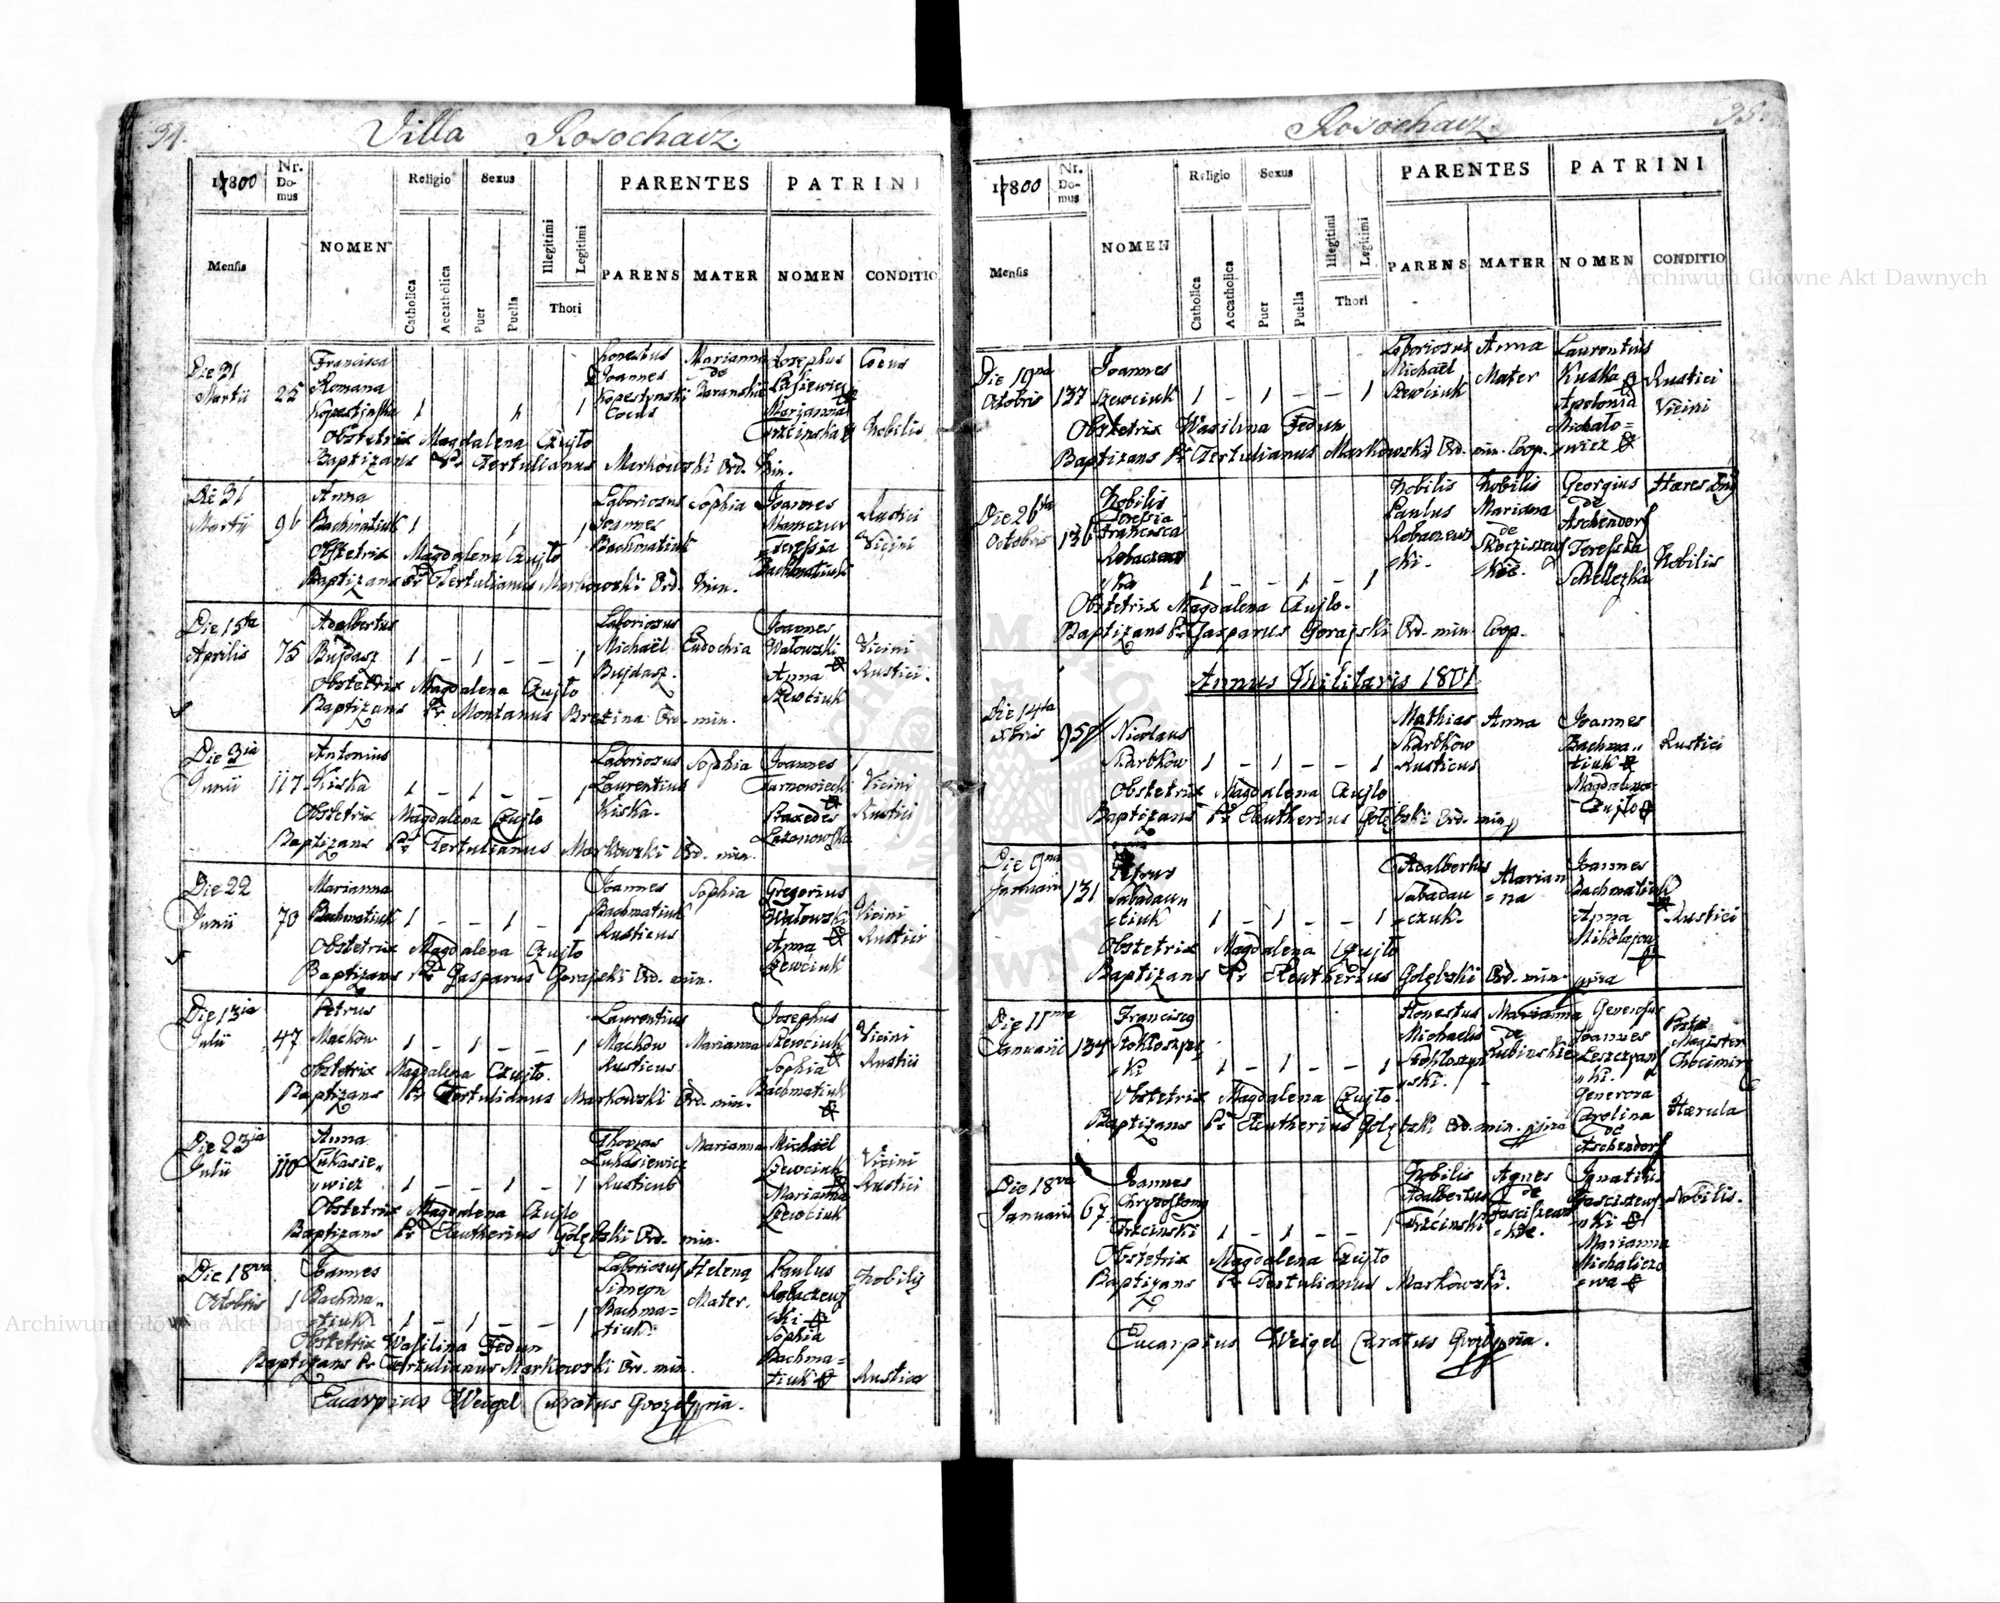 34.
Villa Rosochacz.
1800
Nr. Domus
Mensis
NOMEN
Religio
Catholica
Accatholica
Sexus
Puer
Puella
Illegitimi
Legitimi
Thori
PARENTES
PARENS
MATER
PATRINI
NOMEN
CONDITIO
Die 21 Martii
25
Francisca
Romana
1 1 1
Honestus
Joannes
Kopestynski
Cocus
Marianna
de
Baranskie
Josephus
Marianna
Cocus
Nobilis
Obstetrix Magdalena Czujło
Baptizans Pr Tertulianus Markowski Ord. Min.
Die 31 Martii
96
Anna
Bachmatiuk
1 1 1
Laboriosus
Joannes
Bachmatiuk
Sophia
Joannes
Mamczur
Teressia
Bachmatiuski
Rustici
Vicini
Obstetrix Magdalena Czujło
Baptizans Pr Tertulianus Markowski Ord. Min.
Die 15ta
Aprilis
75
Adalbertus
Bujdasz
1 – 1 – – 1
Laboriosus
Michaël
Bujdasz.
Eudochia
Joannes
Walowski
Anna
Szewciuk
Vicini
Rustici.
Obstetrix Magdalena Czujło
Baptizans Pr Montanus Brezina Ord. min.
Die 3ia
Junii
117
Antonius
Kiska
1 – 1 – – 1
Laboriosus
Laurentius
Kiska.
Sophia
Joannes
Tarnowiecki
Praxedes
Vicini
Rustici
Obstetrix Magdalena Czujło
Baptizans Pr Tertulianus Markowski Ord. min.
Die 22
Junii
70
Marianna
Bachmatiuk
1 – – 1 – 1
Joannes
Bachmatiuk
Rusticus
Sophia
Gregorius
Walowski
Anna
Szewciuk
Vicini
Rustici
Obstetrix Magdalena Czujło
Baptizans Pr Gasparus Gorajski Ord. min.
Die 13ia
Julii
47
Petrus
Machow
1 – 1 – – 1
Laurentius
Machow
Rusticus
Marianna
Josephus
Szewciuk
Sophia
Bachmatiuk
Vicini
Rustici
Obstetrix Magdalena Czujło.
Baptizans Pr Tertulianus Markowski Ord. min.
Die 23ia
Julii
110
Anna
Lukasie„
„wicz
1 – – 1 – 1
Thomas
Lukasiewicz
Rusticus
Marianna
Michaël
Szewciuk
Marianna
Szewciuk
Vicini
Rustici
Obstetrix Magdalena Czujło
Baptizans Pr Eleutherius Golębski Ord. min.
Die 18va
Octobris
1
Joannes
Bachma„
tiuk
1 – 1 – – 1
Laboriosus
Simeon
Bachma=
tiuk
Helena
Mater.
Paulus
Robaczews
ski
Sophia
Bachma=
tiuk
Nobilis
Rustica
Obstetrix Wasilina Fedun
Baptizans Pr Tertulianus Markowski Ord. min.
Eucarpius Weigel Curatus
35.
Rosochacz.
1800
Nr. Domus
Mensis
NOMEN
Religio
Catholica
Accatholica
Sexus
Puer
Puella
Illegitimi
Legitimi
Thori
PARENTES
PARENS
MATER
PATRINI
NOMEN
CONDITIO
Die 19na
Octobris
137
Joannes
Szewciuk
1 – 1 – – 1
Laboriosus
Michaël
Szewciuk
Anna
Mater
Laurentius
Kuska
Apolonia
Michało=
„wicz
Rustici
Vicini
Obstetrix Wasilina Fedun
Baptizans Pr Tertulianus Markowski Ord. min. Coop.
Die 26ta
Octobris
136
Nobilis
Teressia
Francisca
Robaczews
„ka
1 – – 1 – 1
Nobilis
Paulus
Robaczews
ki.
Nobilis
Mariana
de
Georgius
de
Aschendorf
Teresska
Hæres
Nobilis
Obstetrix Magdalena Czujło.
Baptizans Pr Gasparus Gorajski Ord. min. Coop.
Annus Militaris 1801
Die 14ta
Xbris
95
Nicolaus
Skarbkow
1 – 1 – – 1
Mathias
Skarbkow
Rusticus
Anna
Joannes
Bachma„
tiuk
Magdalena
Czujło
Rustici
Obstetrix Magdalena Czujło
Baptizans Pr Eleutherius Golębski Ord. min
Die 9na
Januarii
131
Petrus
1 – 1 – – 1
Adalbertus
Marian
=na
Joannes
Bachmatiuk
Anna
Rustici
Obstetrix Magdalena Czujło
Baptizans Pr Eleutherius Golębski Ord. min.
Die 11ma
Januarii
134
1 – 1 – – 1
Honestus
Michaelus
Marianna
de
Generosus
Joannes
Leszczyns
„ki.
Generosa
Carolina
de
Aschendorf
Postæ
Magister
Hærula
Obstetrix Magdalena Czujło.
Baptizans Pr Eleutherius Golębski Ord. min.
Die 18va
Januarii
67
Joannes
Trzcinski
1 – 1 – – 1
Nobilis
Adalbertus
Trzcinski
Agnes
de
Ignatius
Marianna
Nobilis.
Obstetrix Magdalena Czujło
Baptizans Pr Tertulianus Markowski.
Eucarpius Weigel Curatus
Archiwum Główne Akt Dawnych
Archiwum Główne Akt Dawnych